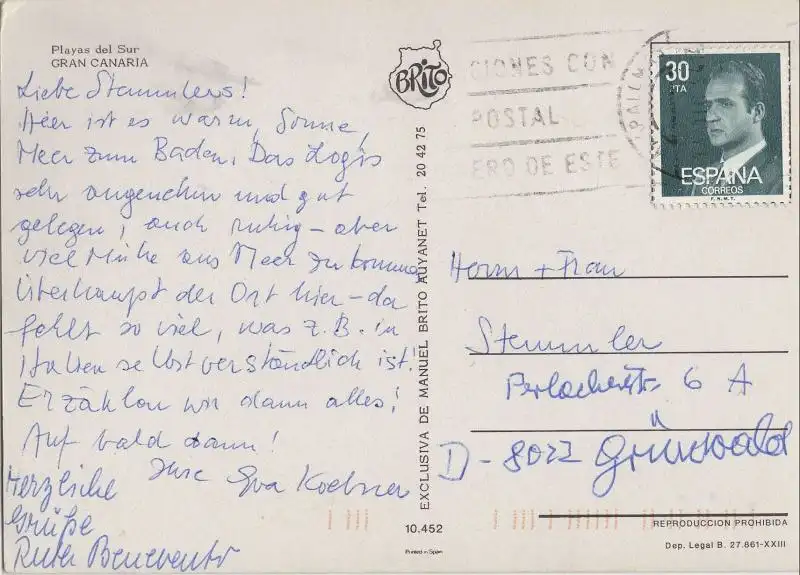 Playas del Sur
GRAN CANARIA
Liebe Stemmlers!
Hier ist es warm, Sonne,
Meer zum Baden. Das Logis
sehr angenehm und gut
gelegen, auch ruhig – aber
viel Mühe ans Meer zu kommen,
Überhaupt der Ort hier – da
fehlt so viel, was z.B. in
Italien selbstverständlich ist!
Erzählen wir dann alles!
Auf bald dann!
Ihre Eva
Herzliche
Grüße
Ruth Benevento
BRITO
EXCLUSIVA DE MANUEL BRITO AUYANET Tel. 20 42 75
10.452
Printed in Spain
CIONES CON
POSTAL
ERO DE ESTE
30
PTA
ESPAÑA
CORREOS
F.N.M.T.
Herrn + Frau
Stemmler
Perlacherstr. 6 A
D - 8022 Grünwald
REPRODUCCION PROHIBIDA
Dep. Legal B. 27.861-XXIII